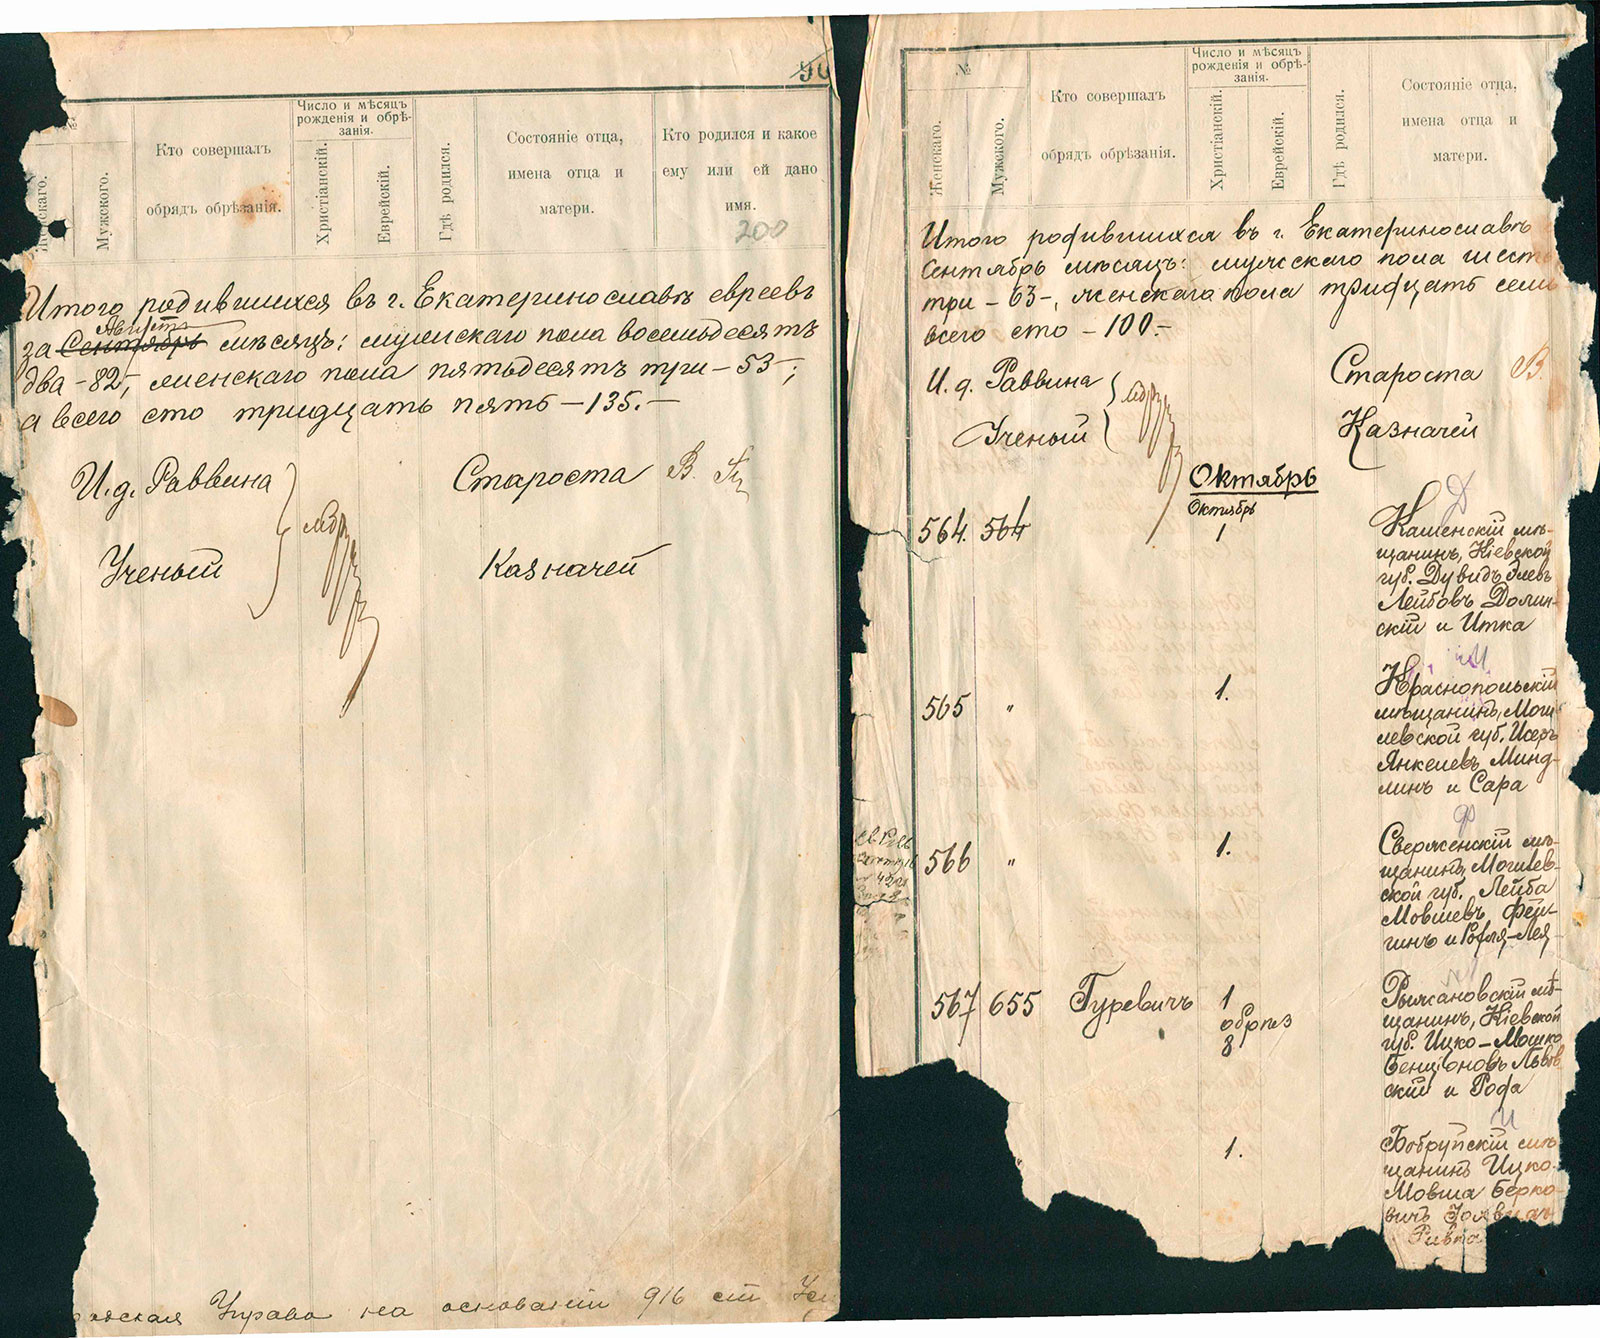 90
№
Женскаго.
Мужского.
Кто совершалъ
обрядъ обрѣзанія.
Число и мѣсяцъ
рожденія и обрѣ-
занія.
Христіанскій.
Еврейскій.
Гдѣ родился.
Состояніе отца,
имена отца и
матери.
Кто родился и какое
ему или ей дано
имя.
200
Итого родившихся въ г. Екатеринославѣ евреевъ
Августъ
за Сентябрь мѣсяцъ: мужскаго пола восемьдесятъ
два – 82 –, женскаго пола пятьдесятъ три – 53 –;
а всего сто тридцать пять – 135. –
И. д. Раввина
Староста В.
Ученый
Казначей
Управа на основаніи 916 ст
№
Женскаго.
Мужского.
Кто совершалъ
обрядъ обрѣзанія.
Число и мѣсяцъ
рожденія и обрѣ-
занія.
Христіанскій.
Еврейскій.
Гдѣ родился.
Состояніе отца,
имена отца и
матери.
Итого родившихся въ г. Екатеринославѣ
Сентябрь мѣсяцъ: мужскаго пола шесть
три – 63 –, женскаго пола тридцать семь
всего сто – 100. –
И. д. Раввина
Староста В.
Ученый
Казначей
Октябрь
Октябрь
564. 564
1
Каменскій мѣ-
щанинъ, Кіевской
губ. Дувидъ Элевъ
Лейбовъ Долин-
скій и Итка
565 "
1.
Краснопольскій
мѣщанинъ, Моги-
левской губ. Исеръ
Янкелевъ Минд-
линъ и Сара
566 "
1.
Сверженскій мѣ-
щанинъ, Могилев-
ской губ. Лейба
Мовшевъ Фей-
гинъ и Рофля-Лея
567 655
Гуревичъ
1
обрѣз
8
Рыжановскій мѣ-
щанинъ, Кіевской
губ. Ицко-Мошко
Бенціоновъ Львов
скій и Рофа
1.
Бобруйскій мѣ-
щанинъ Ицко-
Мовша Берко-
вичъ
Ривка